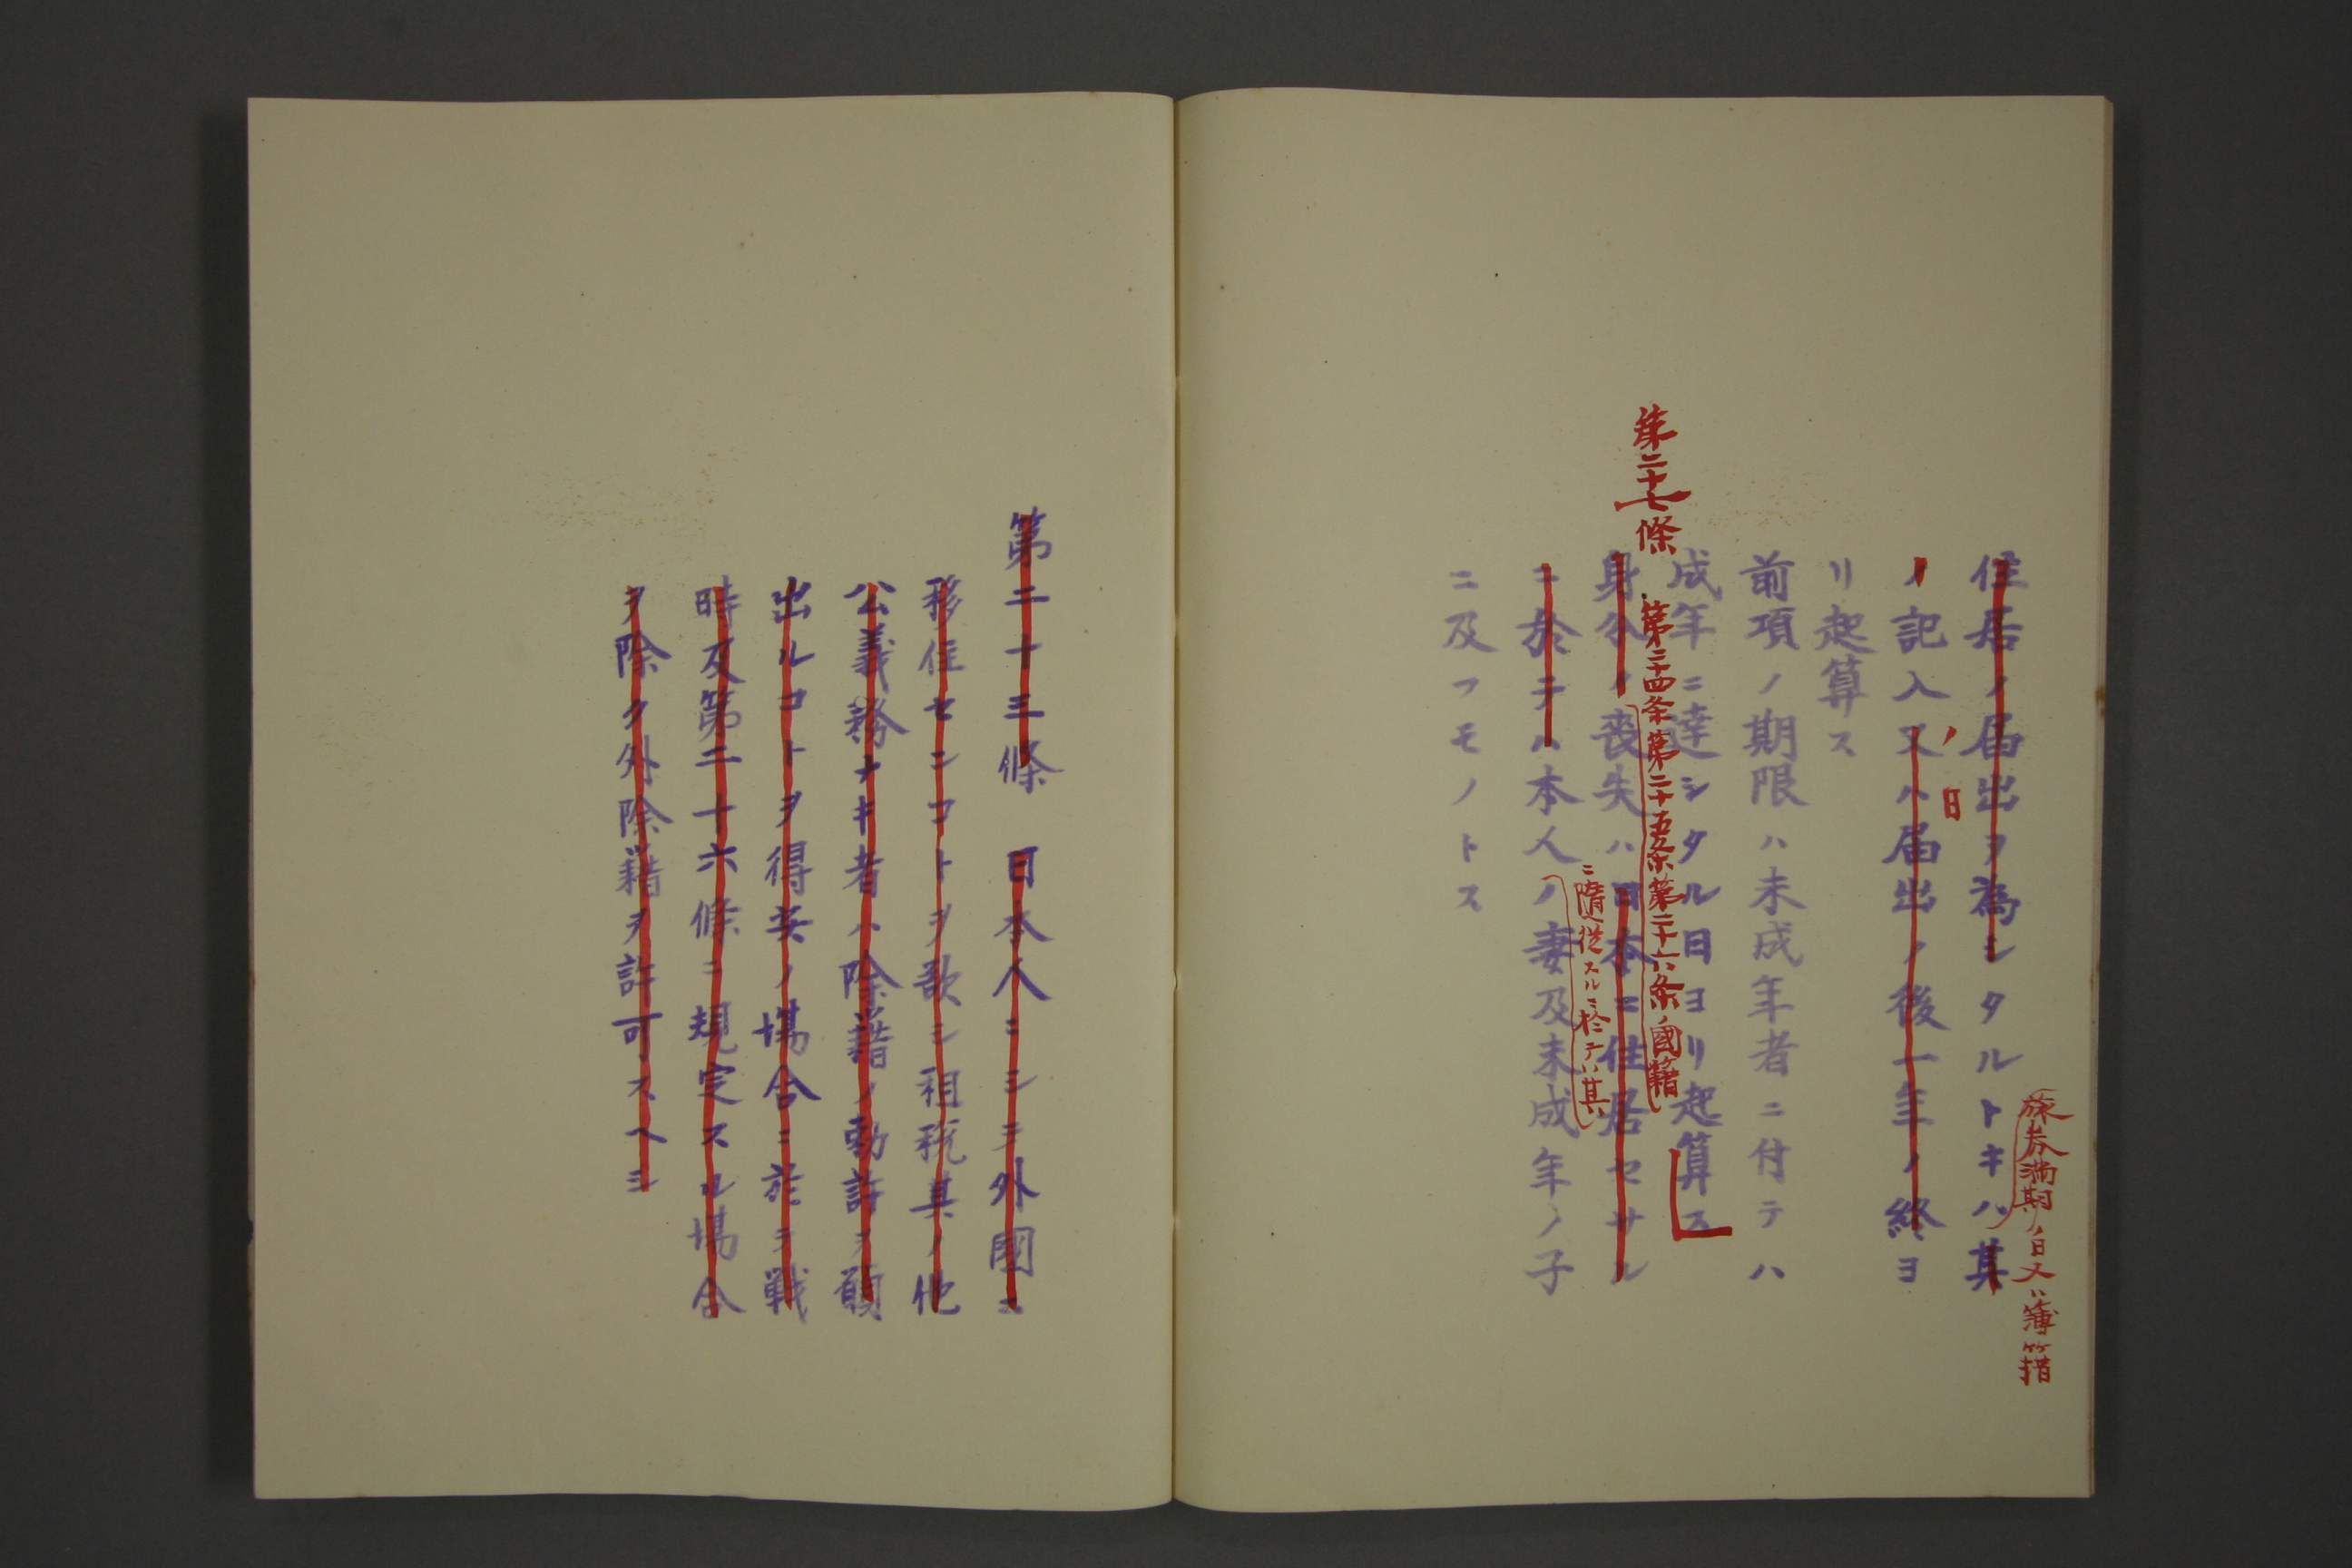 旅券満期ノ日又ハ簿籍
住居ノ届出ヲ為シタルトキハ其
ノ日
ノ記入又ハ届出ノ後一年ノ終ヨ
リ起算ス
前項ノ期限ハ未成年者ニ付テハ
成年ニ達シタル日ヨリ起算ス
第二十七條 第二十四条第二十五条第二十六条ノ國籍
身分ノ喪失ハ日本ニ住居セサル
ニ隨從スルニ於テハ其
ニ於テハ本人ノ妻及未成年ノ子
ニ及フモノトス
第二十三條 日本人ニシテ外國ニ
移住センコトヲ欲シ租税其ノ他
公義務ナキ者ハ除籍ノ勅許ヲ願
出ルコトヲ得其ノ場合ニ於テ戦
時及第二十六條ニ規定スル場合
ヲ除ク外除籍ヲ許可スヘシ